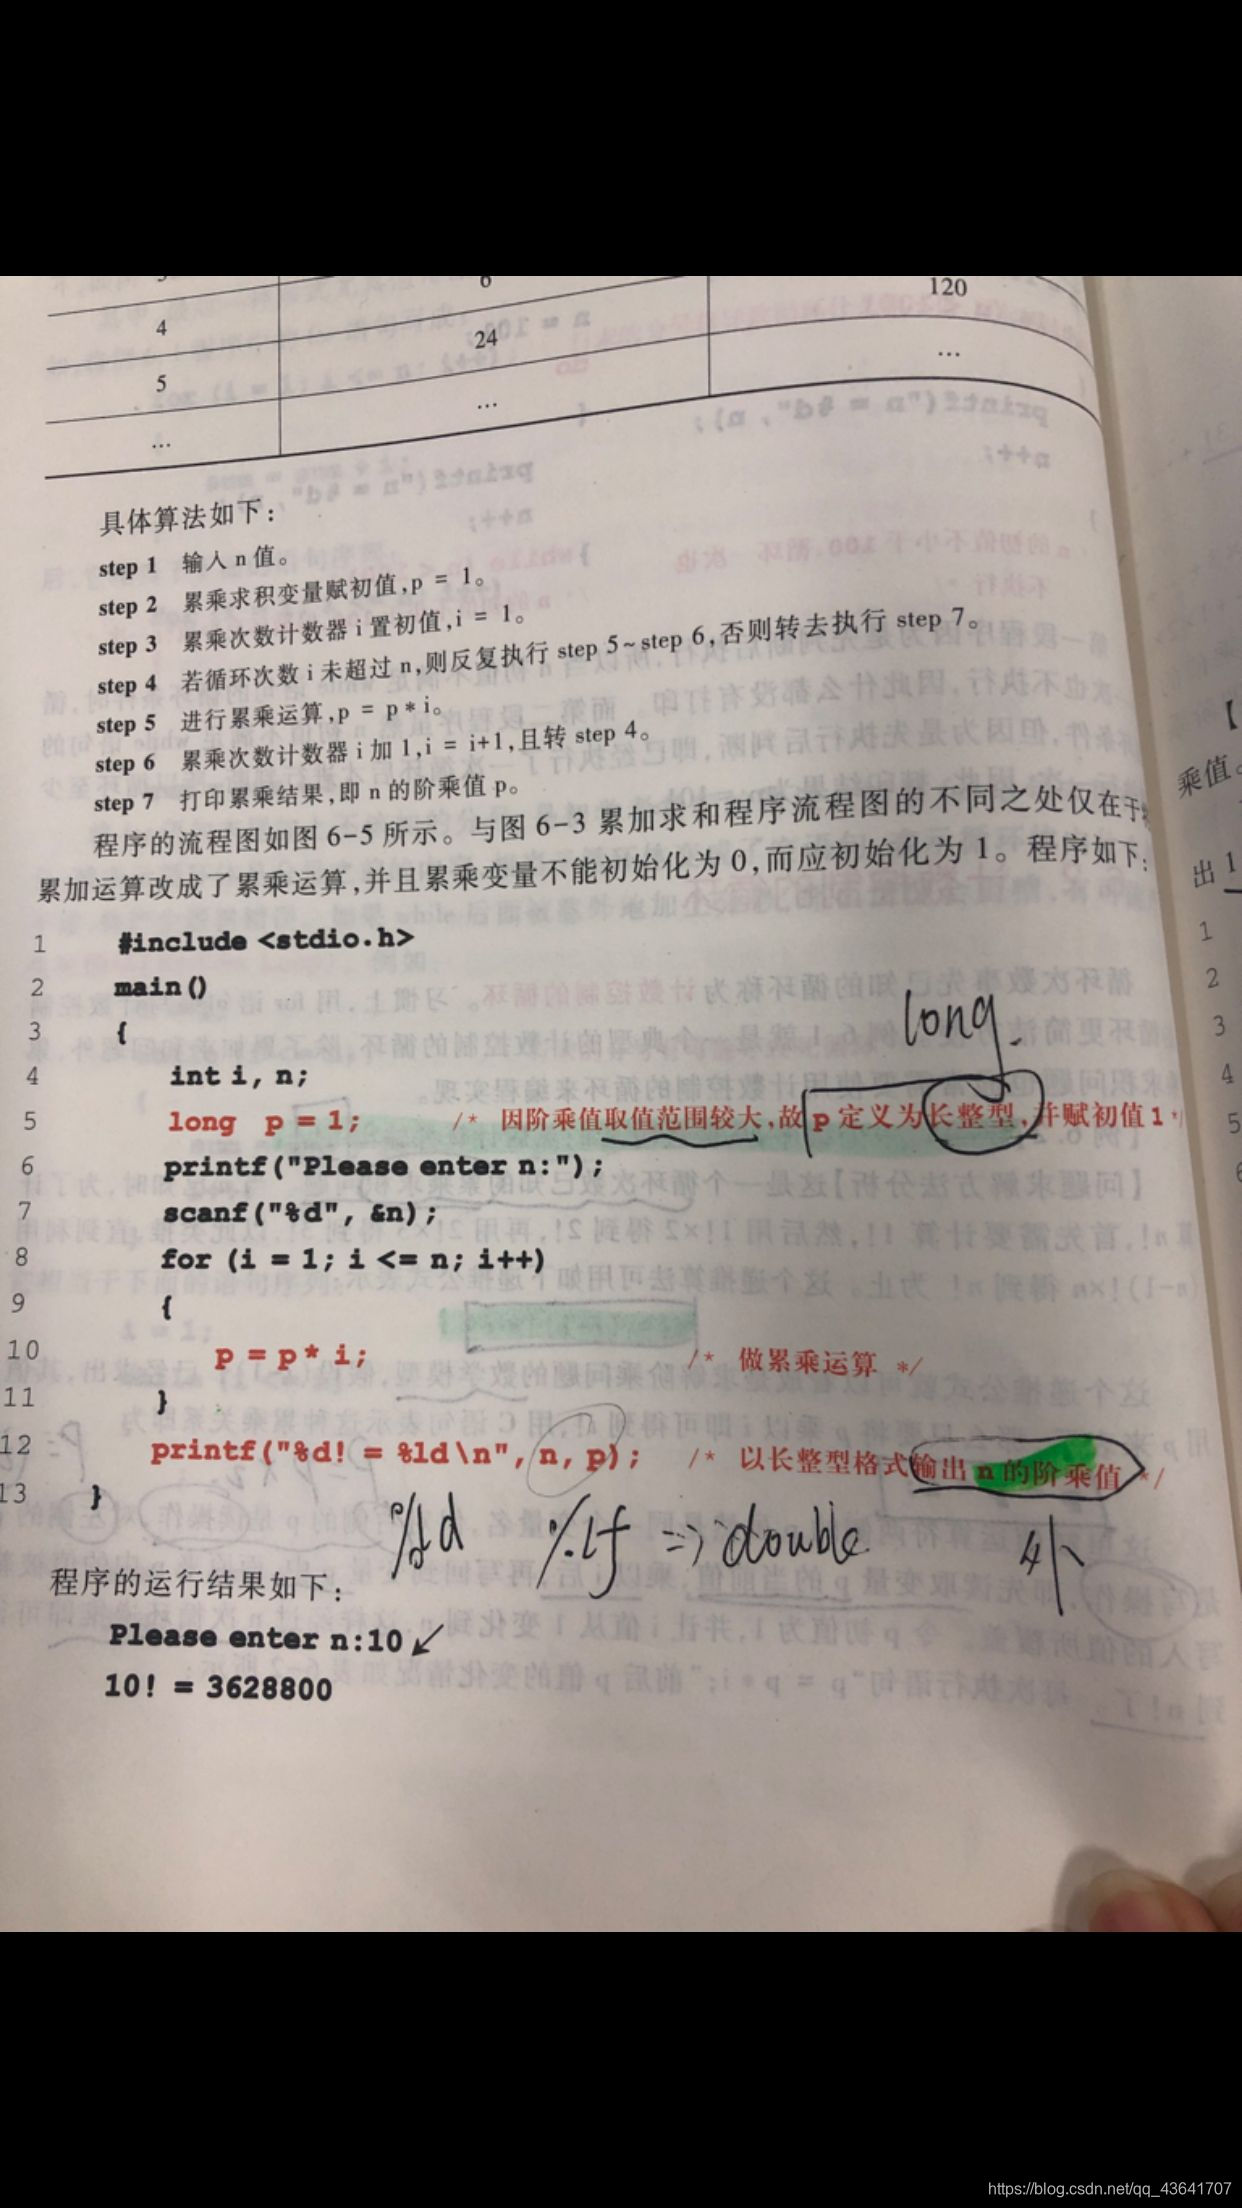 6
120
4
24
…
5
…
…
具体算法如下：
step 1 输入 n 值。
step 2 累乘求积变量赋初值,p = 1。
step 3 累乘次数计数器 i 置初值,i = 1。
step 4 若循环次数 i 未超过 n,则反复执行 step 5~step 6,否则转去执行 step 7。
step 5 进行累乘运算,p = p * i。
step 6 累乘次数计数器 i 加 1,i = i+1,且转 step 4。
step 7 打印累乘结果,即 n 的阶乘值 p。
程序的流程图如图 6-5 所示。与图 6-3 累加求和程序流程图的不同之处仅在于
累加运算改成了累乘运算,并且累乘变量不能初始化为 0,而应初始化为 1。程序如下：
1 #include <stdio.h>
2 main()
long
3 {
4 int i, n;
5 long p = 1; /* 因阶乘值取值范围较大,故 p 定义为长整型,并赋初值 1 */
6 printf("Please enter n:");
7 scanf("%d", &n);
8 for (i = 1; i <= n; i++)
9 {
10 p = p * i; /* 做累乘运算 */
11 }
12 printf("%d! = %ld\n", n, p); /* 以长整型格式输出 n 的阶乘值 */
13 }
%d %lf => double
程序的运行结果如下：
Please enter n:10↙
10! = 3628800
【
乘值。
出 1
1
2
3
4
5
6
https://blog.csdn.net/qq_43641707